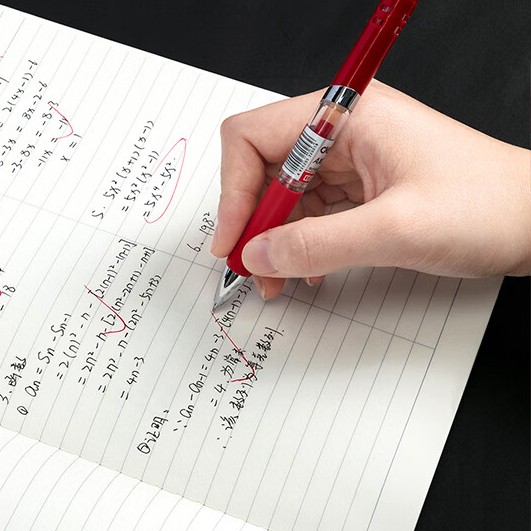 2(4x-1)-6
-3x = 8x-2-6
-3-8x = -8-3
-11x =
x =
5. 5x²(x+1)(x-1)
= 5x²(x²-1)
= 5x⁴-5x²
6. 198²
① an = Sn - Sn-1
= 2(n)² - n - [2(n-1)²-(n-1)]
= 2n² - n - [2(n²-2n+1)-n+1]
= 2n² - n - (2n²-5n+3)
= 4n-3
②证明:
∵ an - an-1 = 4n-3-[4(n-1)-3]
= 4 为常
∴ 该数列为等差数列.